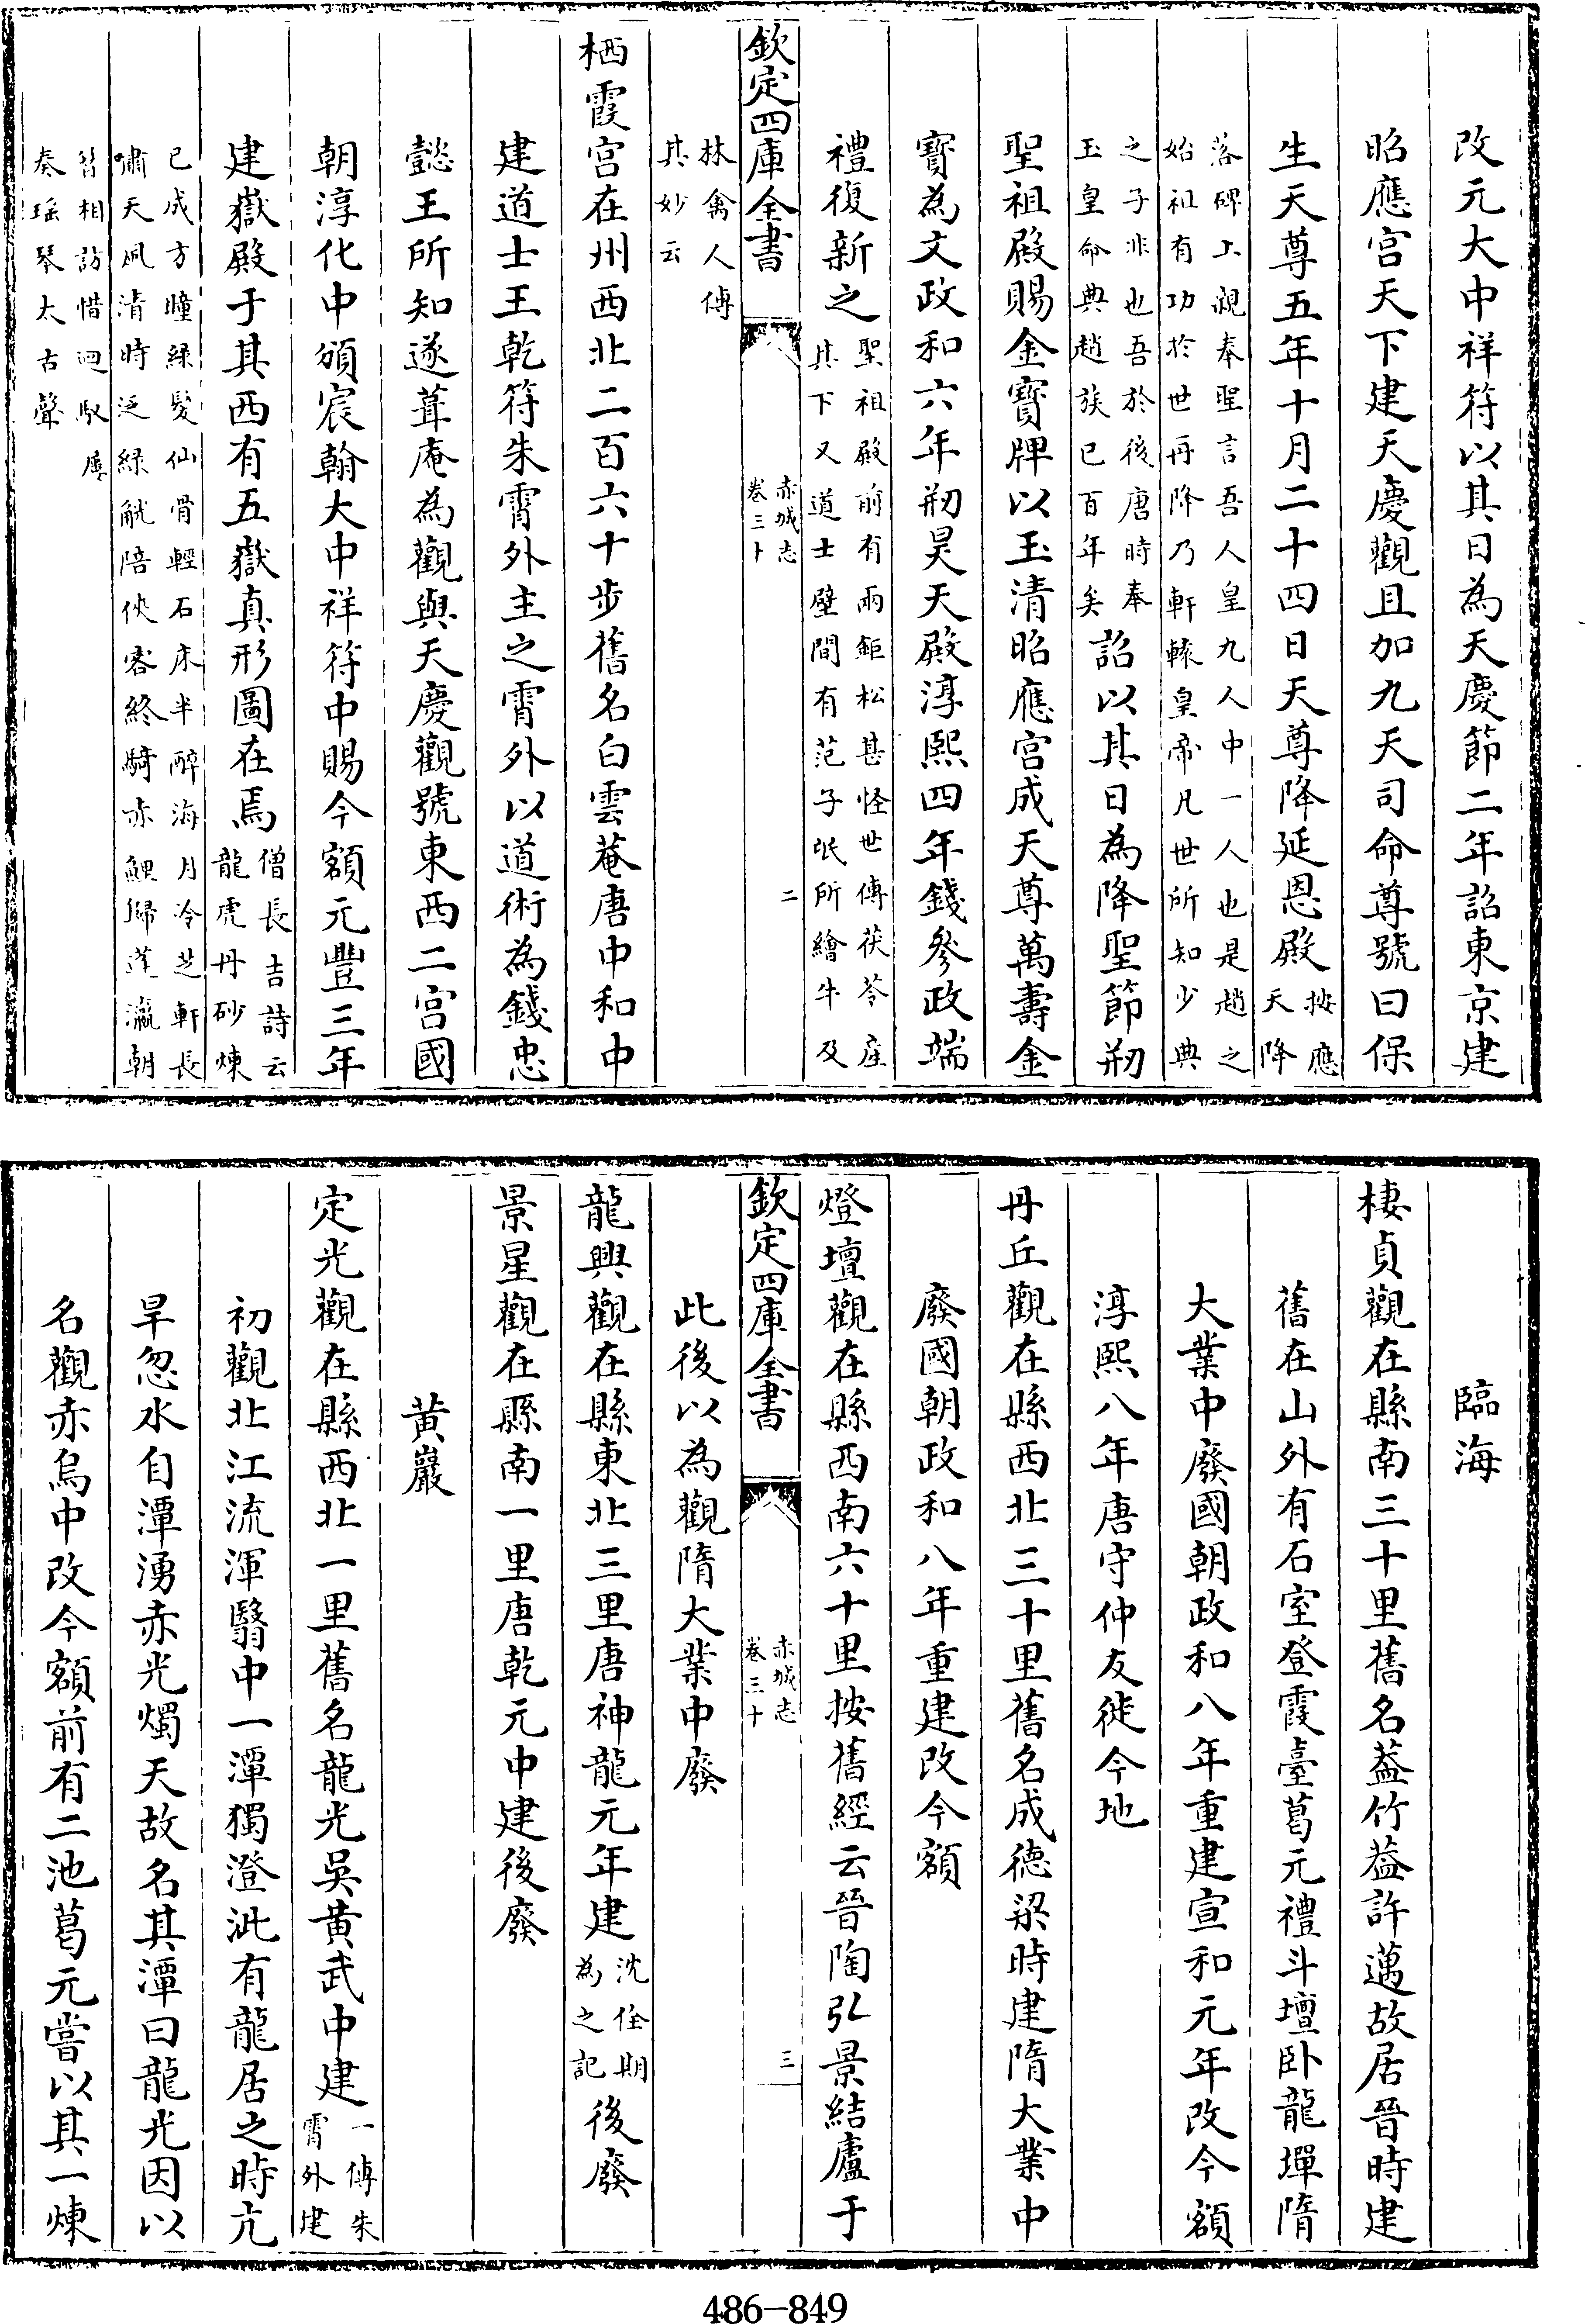 改元大中祥符以其日為天慶節二年詔東京建
昭應宮天下建天慶觀且加九天司命尊號曰保
生天尊五年十月二十四日天尊降延恩殿按應天降
落碑上親奉聖言吾人皇九人中一人也是趙之
始祖有功於世再降乃軒轅皇帝凡世所知少典
之子非也吾於後唐時奉
玉皇命典趙族已百年矣
詔以其日為降聖節刱
聖祖殿賜金寶牌以玉清昭應宮成天尊萬壽金
寶為文政和六年刱昊天殿淳熙四年錢參政端
禮復新之聖祖殿前有兩鉅松甚怪世傳茯苓産
其下又道士壁間有范子珉所繪牛及
欽定四庫全書
赤城志
卷三十
二
林禽人傳
其妙云
栖霞宮在州西北二百六十步舊名白雲菴唐中和中
建道士王乾符朱霄外主之霄外以道術為錢忠
懿王所知遂葺庵為觀與天慶觀號東西二宮國
朝淳化中頒宸翰大中祥符中賜今額元豐三年
建嶽殿于其西有五嶽真形圖在焉僧長吉詩云
龍虎丹砂煉
已成方瞳緑髪仙骨輕石床半醉海月冷芝軒長
嘯天風清時泛緑觥陪俠客終騎赤鯉歸蓬瀛朝
簪相訪惜迴馭屢
奏瑶琴太古聲
臨海
棲貞觀在縣南三十里舊名葢竹葢許邁故居晉時建
舊在山外有石室登霞臺葛元禮斗壇卧龍墠隋
大業中廢國朝政和八年重建宣和元年改今額
淳熙八年唐守仲友徙今地
丹丘觀在縣西北三十里舊名成德梁時建隋大業中
廢國朝政和八年重建改今額
燈壇觀在縣西南六十里按舊經云晉陶弘景結廬于
欽定四庫全書
赤城志
卷三十
三
此後以為觀隋大業中廢
龍興觀在縣東北三里唐神龍元年建沈佺期為之記後廢
景星觀在縣南一里唐乾元中建後廢
黄巖
定光觀在縣西北一里舊名龍光吳黄武中建一傳朱霄外建
初觀北江流渾翳中一潭獨澄泚有龍居之時亢
旱忽水自潭湧赤光燭天故名其潭曰龍光因以
名觀赤烏中改今額前有二池葛元嘗以其一煉
486-849